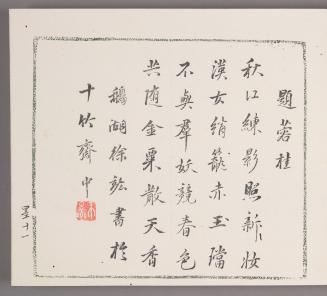 題蓉桂
秋江練影照新妝
漢女綃籠赤玉璫
不與羣妖競春色
共随金粟散天香
鵝湖徐 書於
十竹齋中